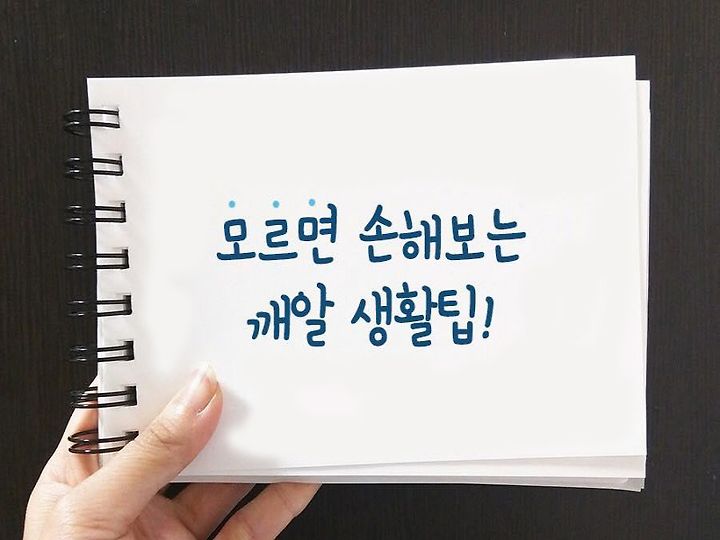 모르면 손해보는
깨알 생활팁!